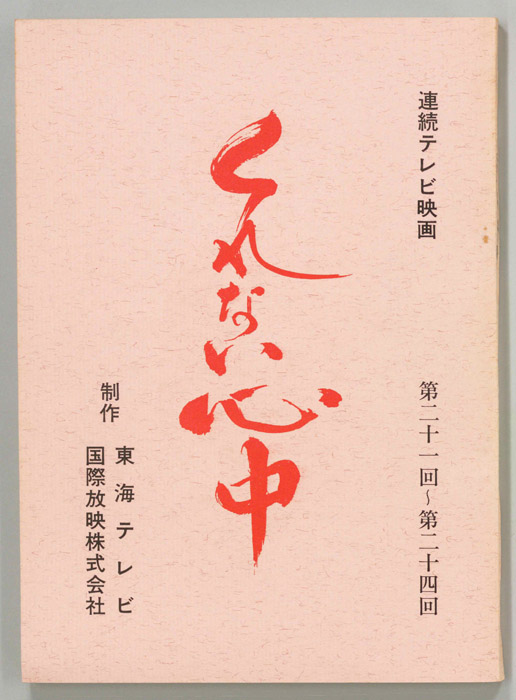 連続テレビ映画
第二十一回~第二十四回
くれない心中
制作 東海テレビ
国際放映株式会社